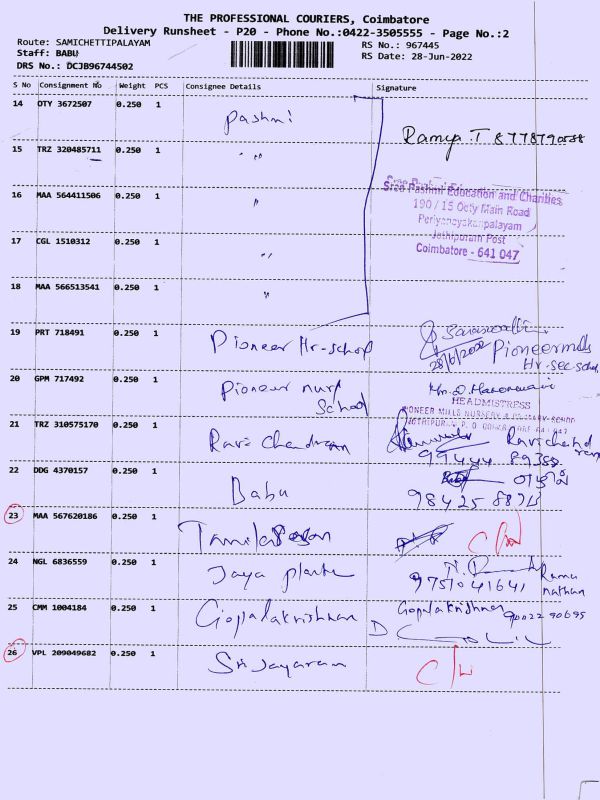 THE PROFESSIONAL COURIERS, Coimbatore
Delivery Runsheet - P20 - Phone No.:0422-3505555 - Page No.:2
Route: SAMICHETTIPALAYAM
Staff: BABU
DRS No.: DCJB96744502
RS No.: 967445
RS Date: 28-Jun-2022
S No Consignment No Weight PCS Consignee Details Signature
14 OTY 3672507 0.250 1 Pashmi
Ramya T 8778790588
15 TRZ 320485711 0.250 1 "
16 MAA 564411506 0.250 1 "
Sree Pashmi Education and Charities
190 / 15 Ooty Main Road
Periyanayakanpalayam
Jothipuram Post
Coimbatore - 641 047
17 CGL 1510312 0.250 1 "
18 MAA 566513541 0.250 1 "
19 PRT 718491 0.250 1 Pioneer Hr-school
28/6/2022 Pioneer mills
Hr-sec school
20 GPM 717492 0.250 1 Pioneer nurs
School
HEADMISTRESS
PIONEER MILLS NURSERY & PRIMARY SCHOOL
21 TRZ 310575170 0.250 1 Ravi Chandran
Ravichand
ran
22 DDG 4370157 0.250 1 Babu
23 MAA 567620186 0.250 1
24 NGL 6836559 0.250 1 Jaya
9751041641 Rama
nathan
25 CMM 1004184 0.250 1 Gopalakrishnan
Gopalakrishnan 9002290695
26 VPL 209049682 0.250 1 Sri Jayaram